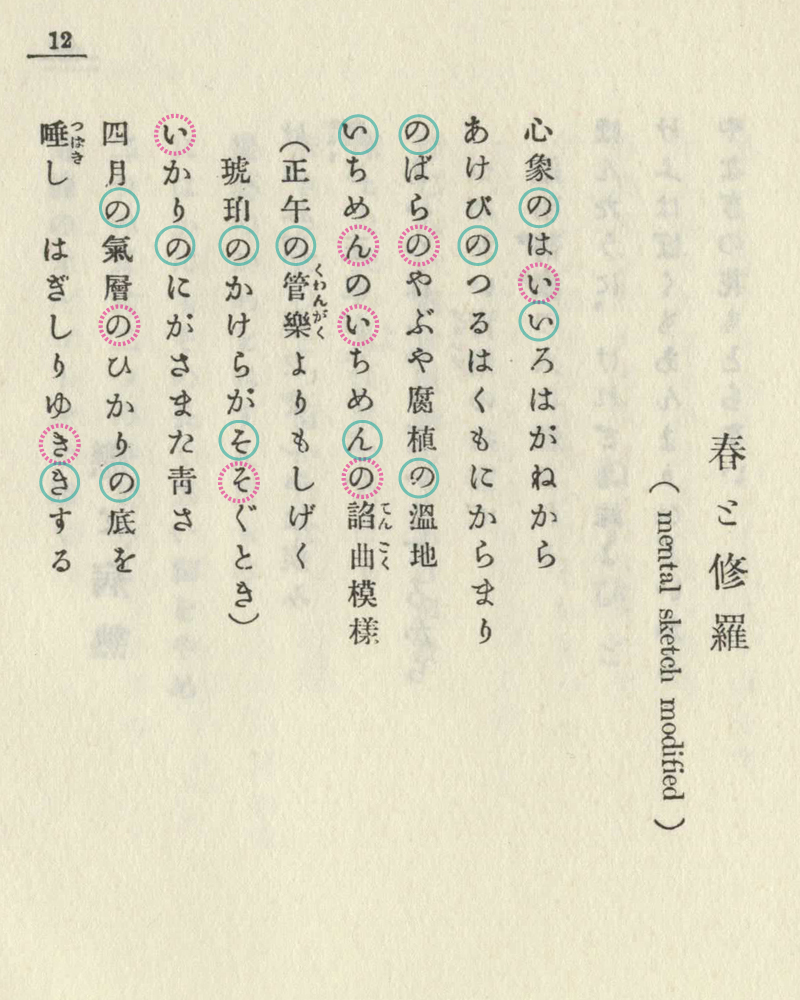 12
春と修羅
( mental sketch modified )
心象のはいいろはがねから
あけびのつるはくもにからまり
のばらのやぶや腐植の濕地
いちめんのいちめんの諂曲模樣
てんごく
(正午の管樂よりもしげく
くわんがく
琥珀のかけらがそそぐとき)
いかりのにがさまた靑さ
四月の氣層のひかりの底を
唾し はぎしりゆききする
つばき